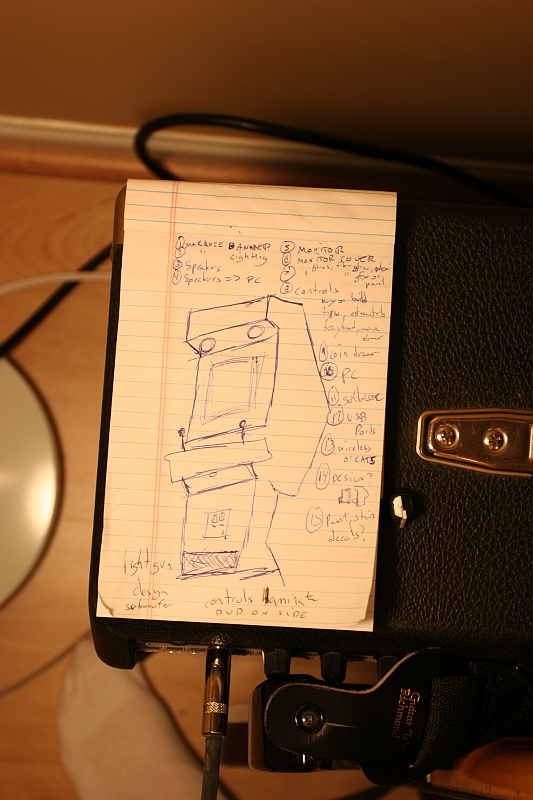 1 MARQUEE BANNER
2 " lighting
3 Speakers
4 Speakers => PC
5 MONITOR
6 MONITOR COVER
7 " glass,
paint
8 Controls
buy or build
type,
drawer
9 Coin drawer
10 PC
11 software
12 USB
Ports
13 wireless
or CAT5
14 DESIGN?
15 Paint, stain
decals?
light gun
design
subwoofer
controls laminate
DVD ON SIDE
Guitar
Richmond